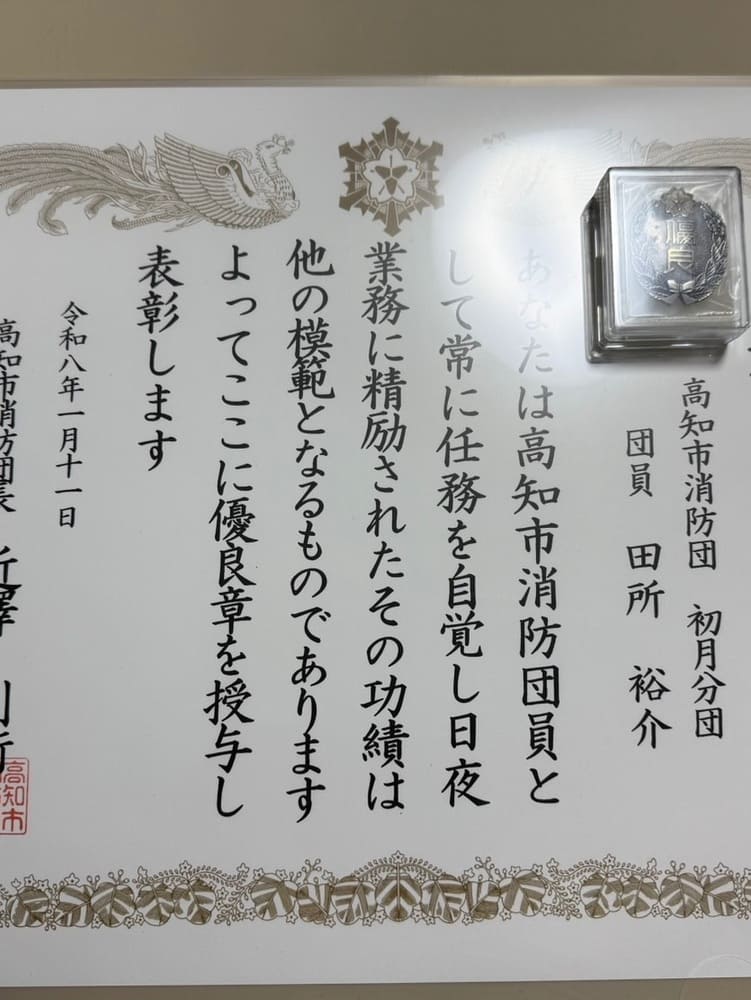 高知市消防団 初月分団
団員 田所 裕介
あなたは高知市消防団員と
して常に任務を自覚し日夜
業務に精励されたその功績は
他の模範となるものであります
よってここに優良章を授与し
表彰します
令和八年一月十一日
高知市消防団長
優良
高知市